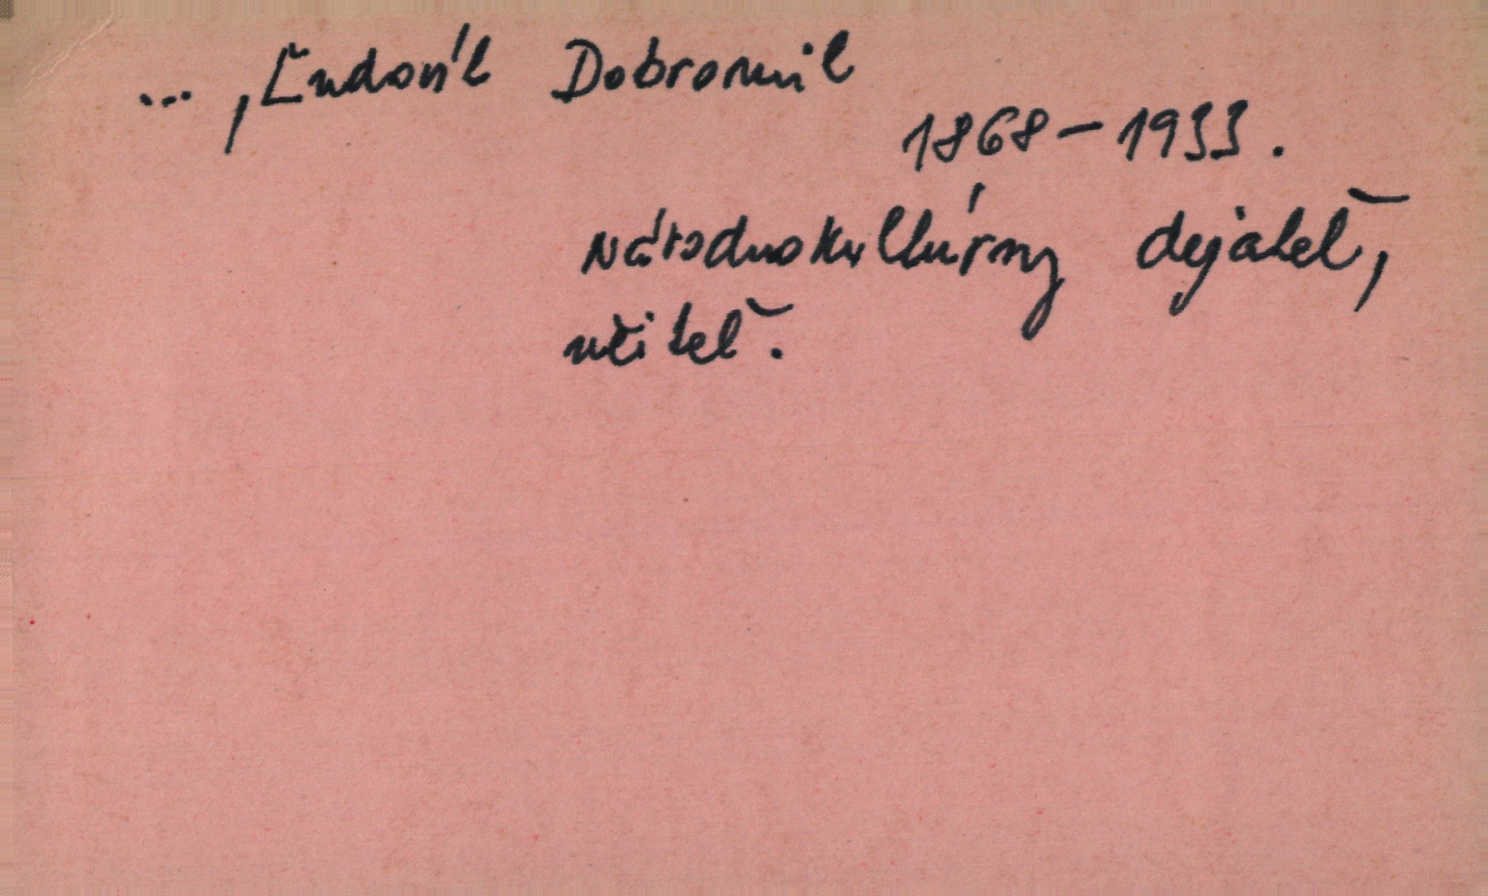 ... , Ľudovít Dobromil
1868-1933.
Národnokultúrny dejateľ,
učiteľ.